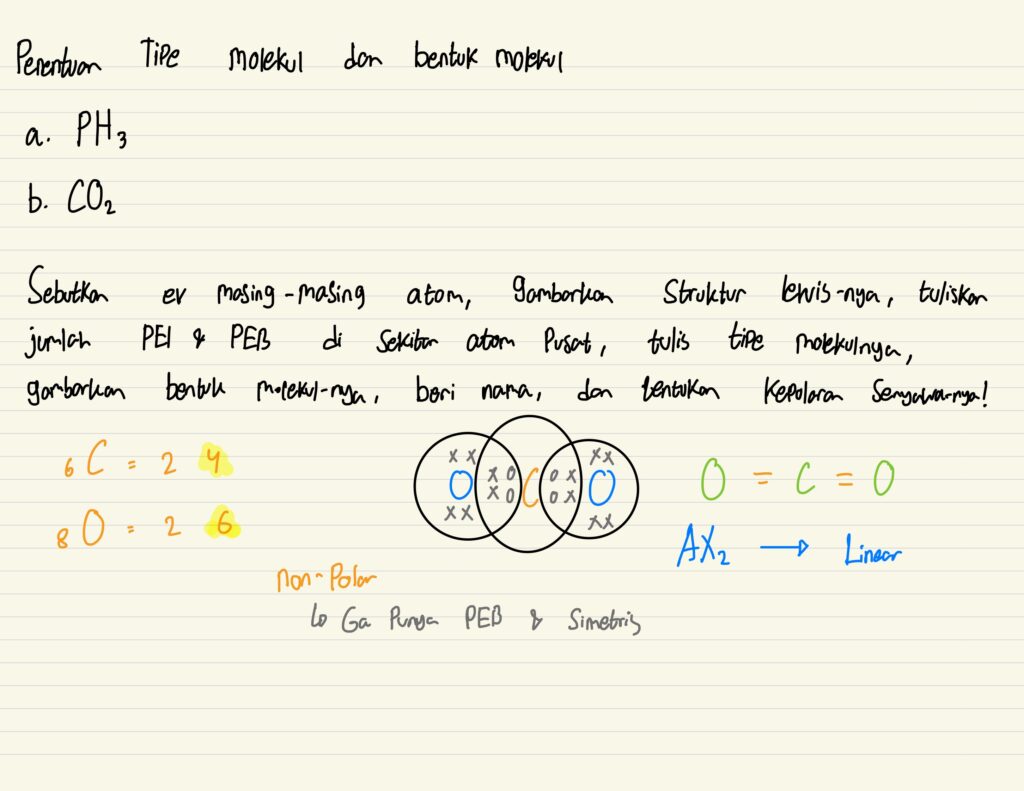 Penentuan Tipe molekul dan bentuk molekul
a. PH₃
b. CO₂
Sebutkan ev masing-masing atom, gambarkan Struktur lewis-nya, tuliskan
jumlah PEI & PEB di Sekitar atom Pusat, tulis tipe molekulnya,
gambarkan bentuk molekul-nya, beri nama, dan tentukan Kepolaran Senyawa-nya!
₆C = 2 4
₈O = 2 6
x x
O
x x
x o
x o
C
o x
o x
x x
O
x x
O = C = O
AX₂ → Linear
non-Polar
↳ Ga Punya PEB & Simetris